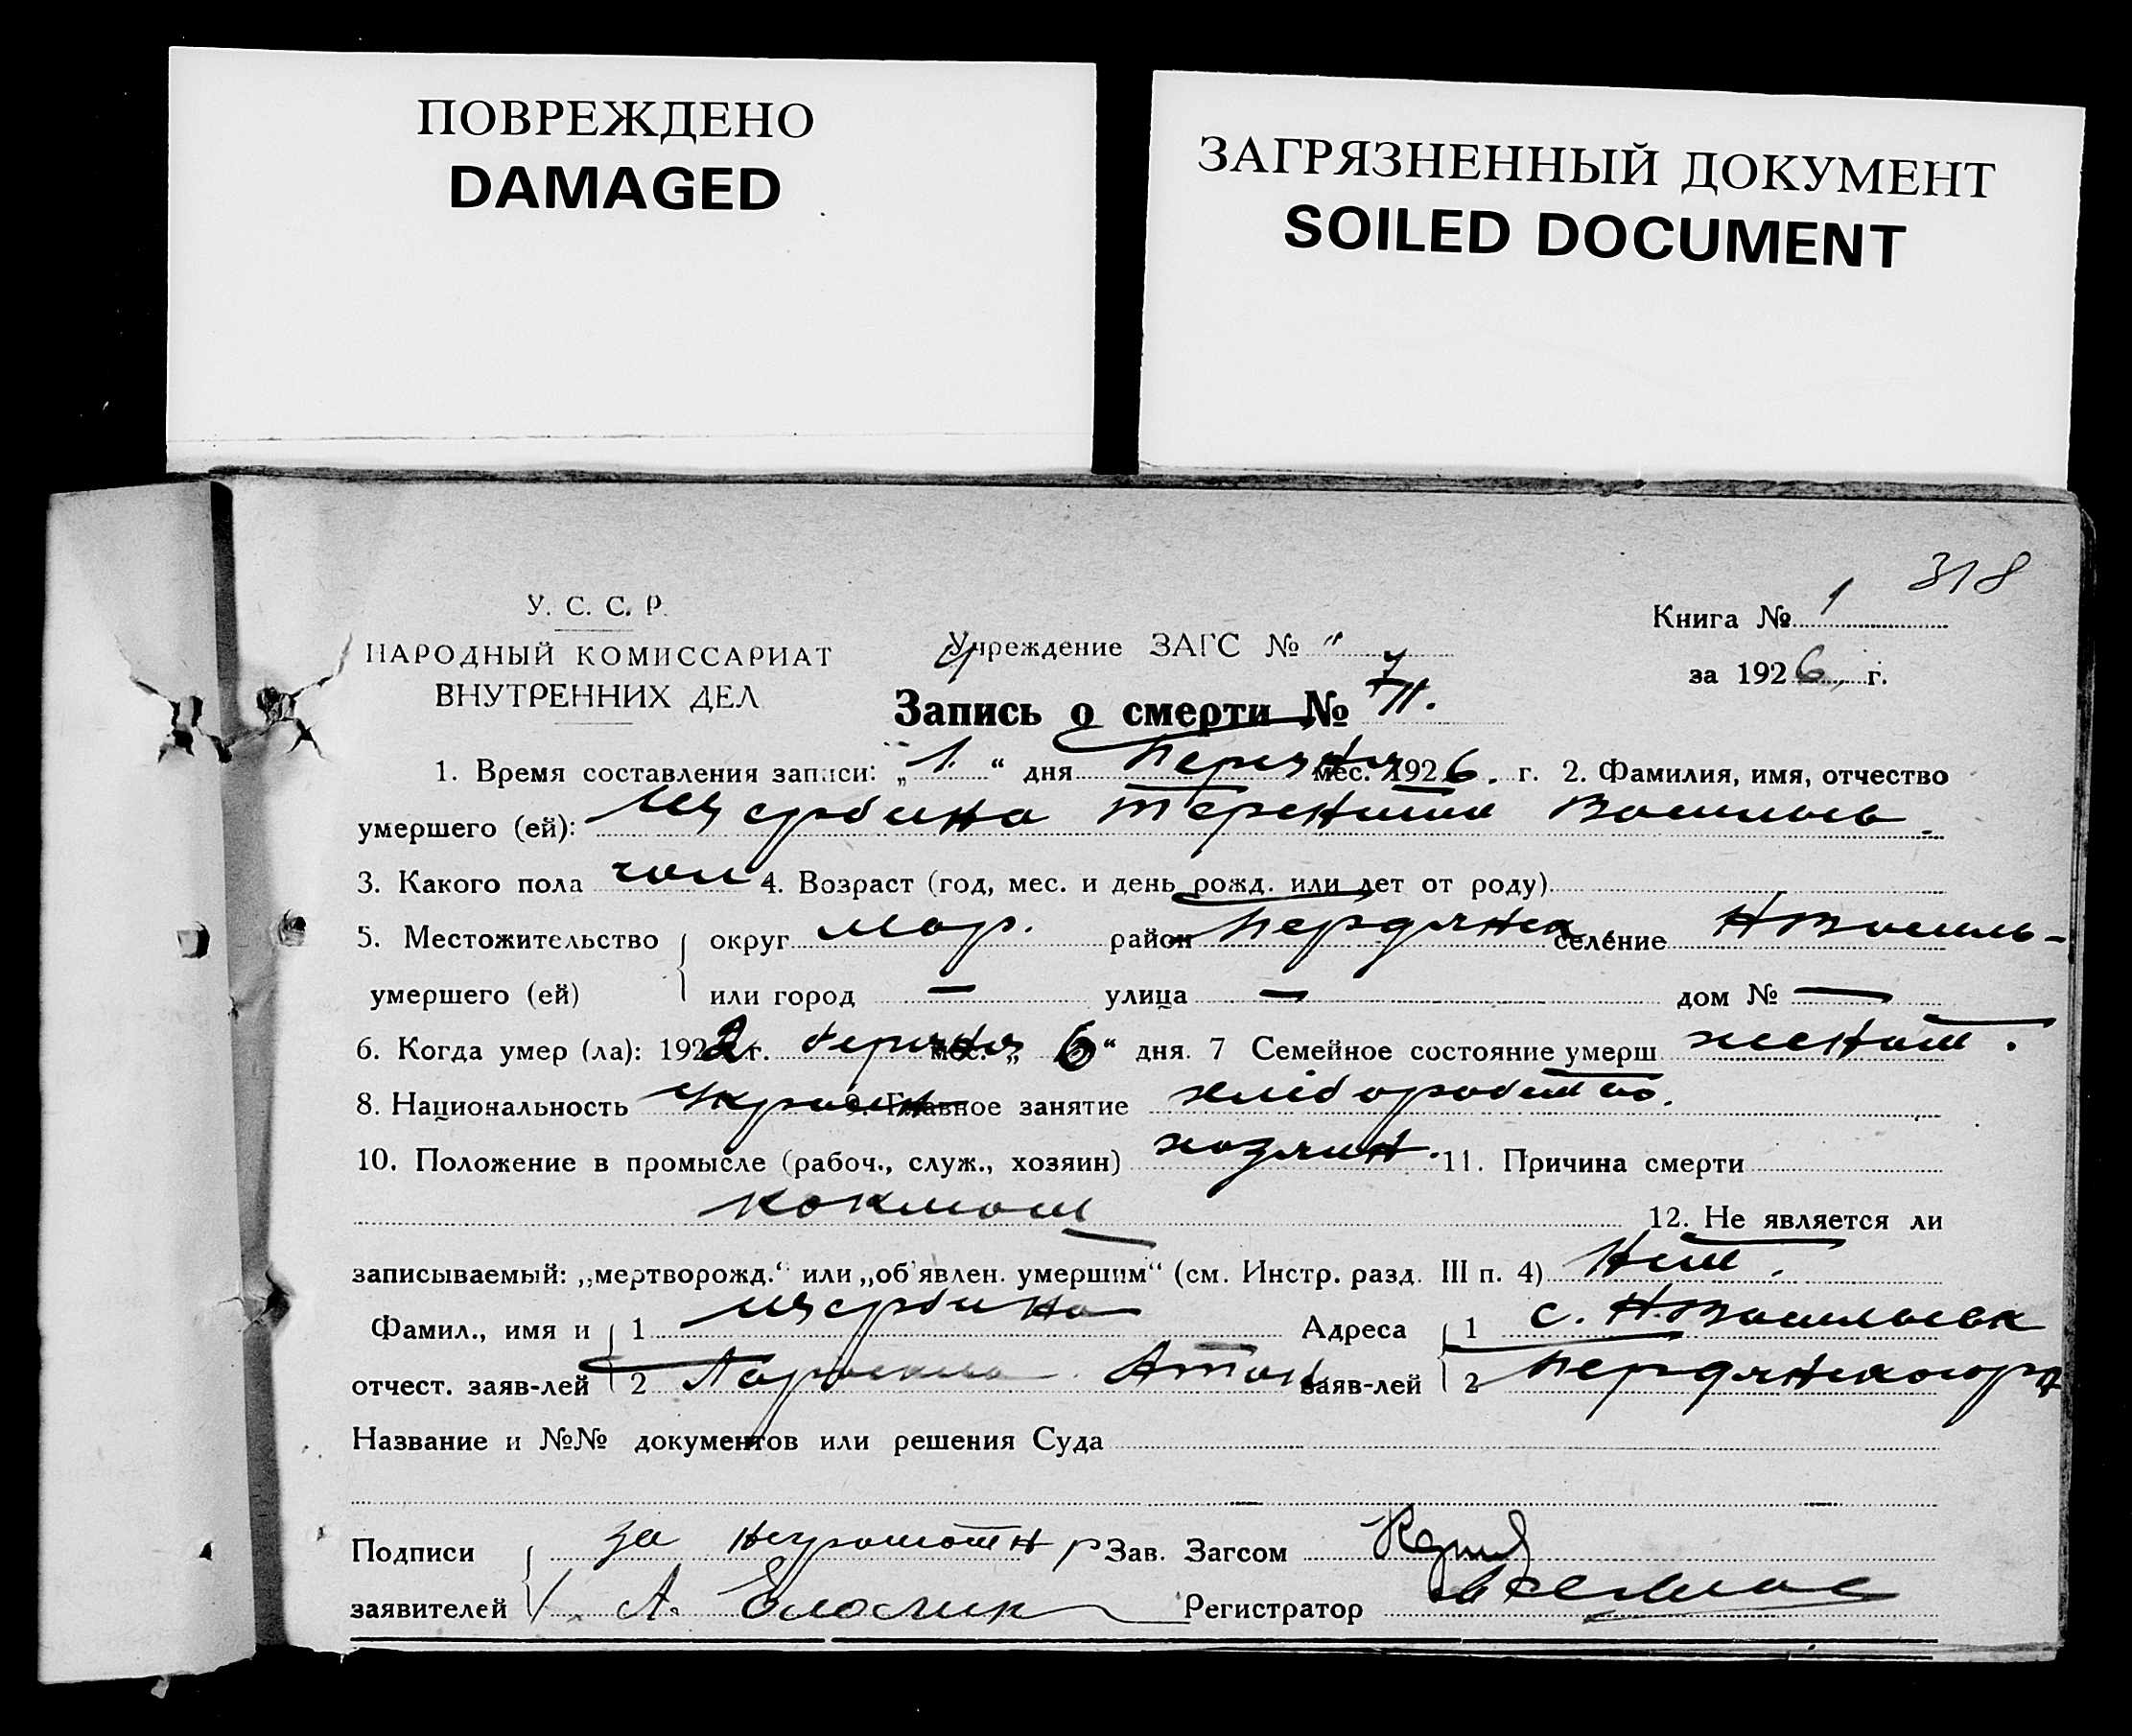 ПОВРЕЖДЕНО
DAMAGED
ЗАГРЯЗНЕННЫЙ ДОКУМЕНТ
SOILED DOCUMENT
318
У. С. С. Р.
НАРОДНЫЙ КОМИССАРИАТ
ВНУТРЕННИХ ДЕЛ
Учреждение ЗАГС № "
Книга № 1
за 1926 г.
Запись о смерти №
1. Время составления записи: „1.“ дня Березня мес. 1926. г. 2. Фамилия, имя, отчество
умершего (ей): Щербина Терентий Василь
3. Какого пола чол 4. Возраст (год, мес. и день рожд. или лет от роду)
5. Местожительство округ Мар. район Бердянск селение Н Василь-
умершего (ей) или город — улица — дом № —
6. Когда умер (ла): 1922 г. березня мес. „6“ дня. 7 Семейное состояние умерш женат.
8. Национальность Украин 9. Главное занятие хліборобство.
10. Положение в промысле (рабоч., служ., хозяин) хозяин. 11. Причина смерти
12. Не является ли
записываемый: „мертворожд.“ или „об'явлен. умершим“ (см. Инстр. разд. III п. 4) Ніт.
Фамил., имя и 1 Щербина Адреса 1 с. Н.Васильевк
отчест. заяв-лей 2 заяв-лей 2 Бердянского р
Название и №№ документов или решения Суда
Подписи за неграмотн Зав. Загсом
заявителей А. Регистратор